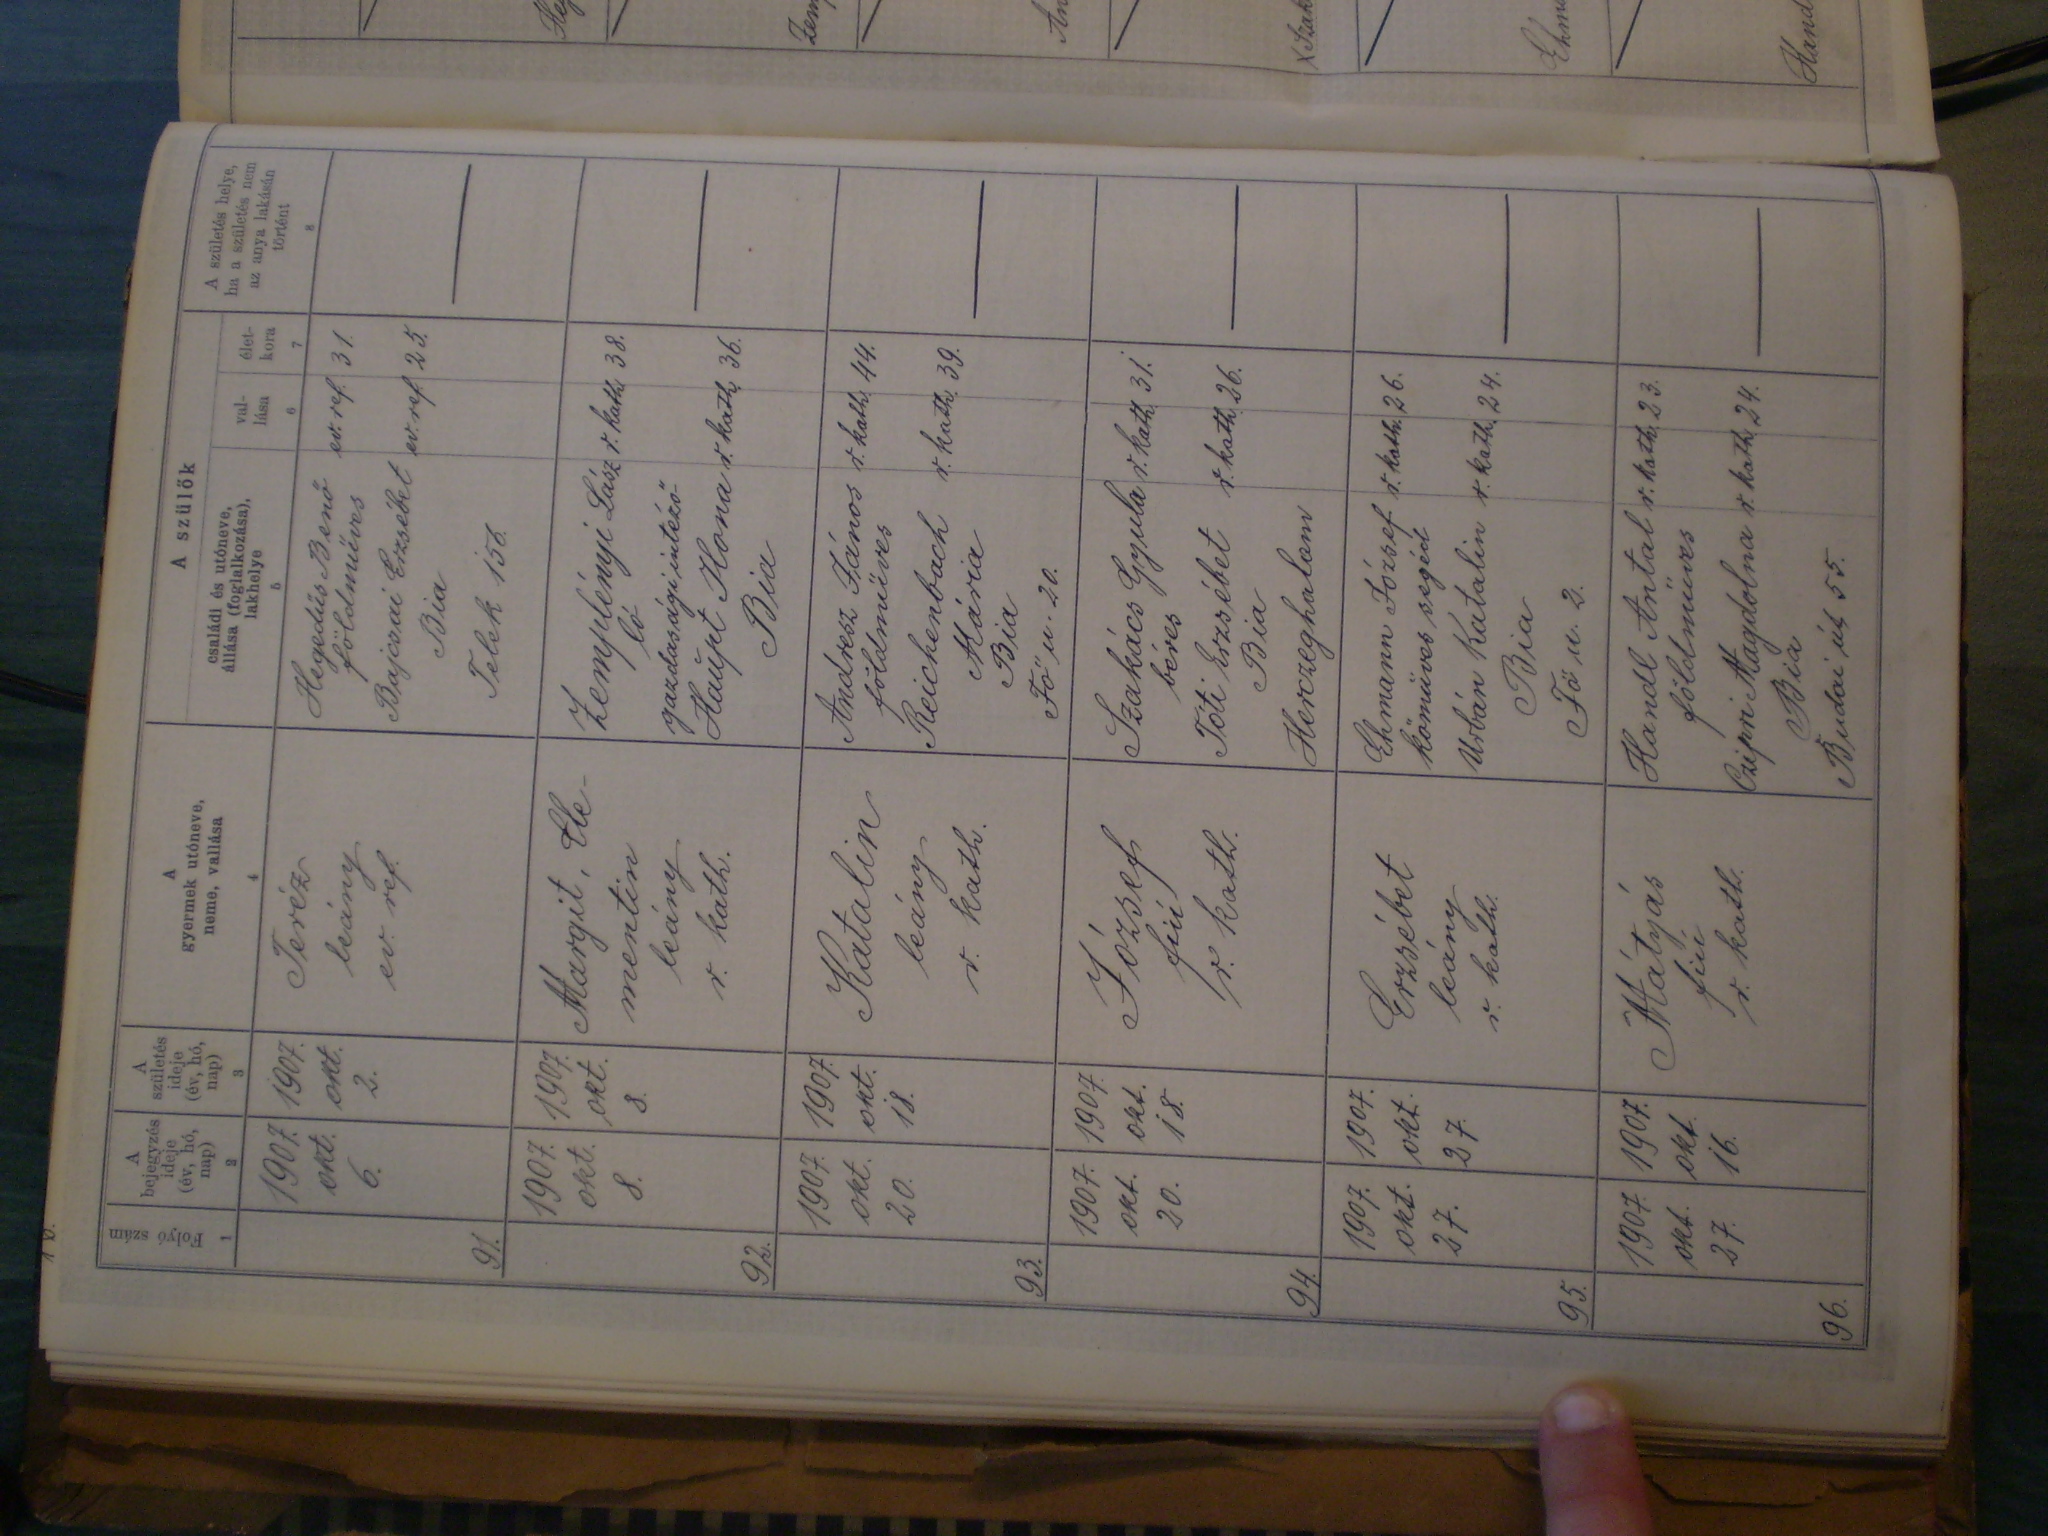 A szülők
Folyó szám
A bejegyzés ideje (év, hó, nap)
A születés ideje (év, hó, nap)
A gyermek utóneve, neme, vallása
családi és utóneve, állása (foglalkozása), lakhelye
val-lása
élet-kora
A születés helye, ha a születés nem az anya lakásán történt
1 2 3 4 5 6 7 8
91.
1907. okt. 6.
1907. okt. 2.
Teréz
leány
ev. ref.
Hegedűs Benő ev. ref. 31.
földműves
Bajcsai Erzsébet ev. ref. 25.
Bia
Telek 156.
92.
1907. okt. 8.
1907. okt. 8.
Margit, Cle-
mentin
leány
r. kath.
Zemplényi Lász r. kath. 38.
ló
gazdasági intéző
Haupt Ilona r. kath. 36.
Bia
93.
1907. okt. 20.
1907. okt. 18.
Katalin
leány
r. kath.
Andresz János r. kath. 44.
földműves
Reichenbach r. kath. 39.
Mária
Bia
Fő u. 20.
94.
1907. okt. 20.
1907. okt. 18.
József
fiú
r. kath.
Szakács Gyula r. kath. 31.
béres
Tóti Erzsébet r. kath. 26.
Bia
Herczeghalom
95.
1907. okt. 27.
1907. okt. 27.
Erzsébet
leány
r. kath.
Ehmann József r. kath. 26.
kőműves segéd
Urbán Katalin r. kath. 24.
Bia
Fő u. 2.
96.
1907. okt. 27.
1907. okt. 16.
Mátyás
fiú
r. kath.
Handl Antal r. kath. 23.
földműves
Czipri Magdolna r. kath. 24.
Bia
Budai út 55.